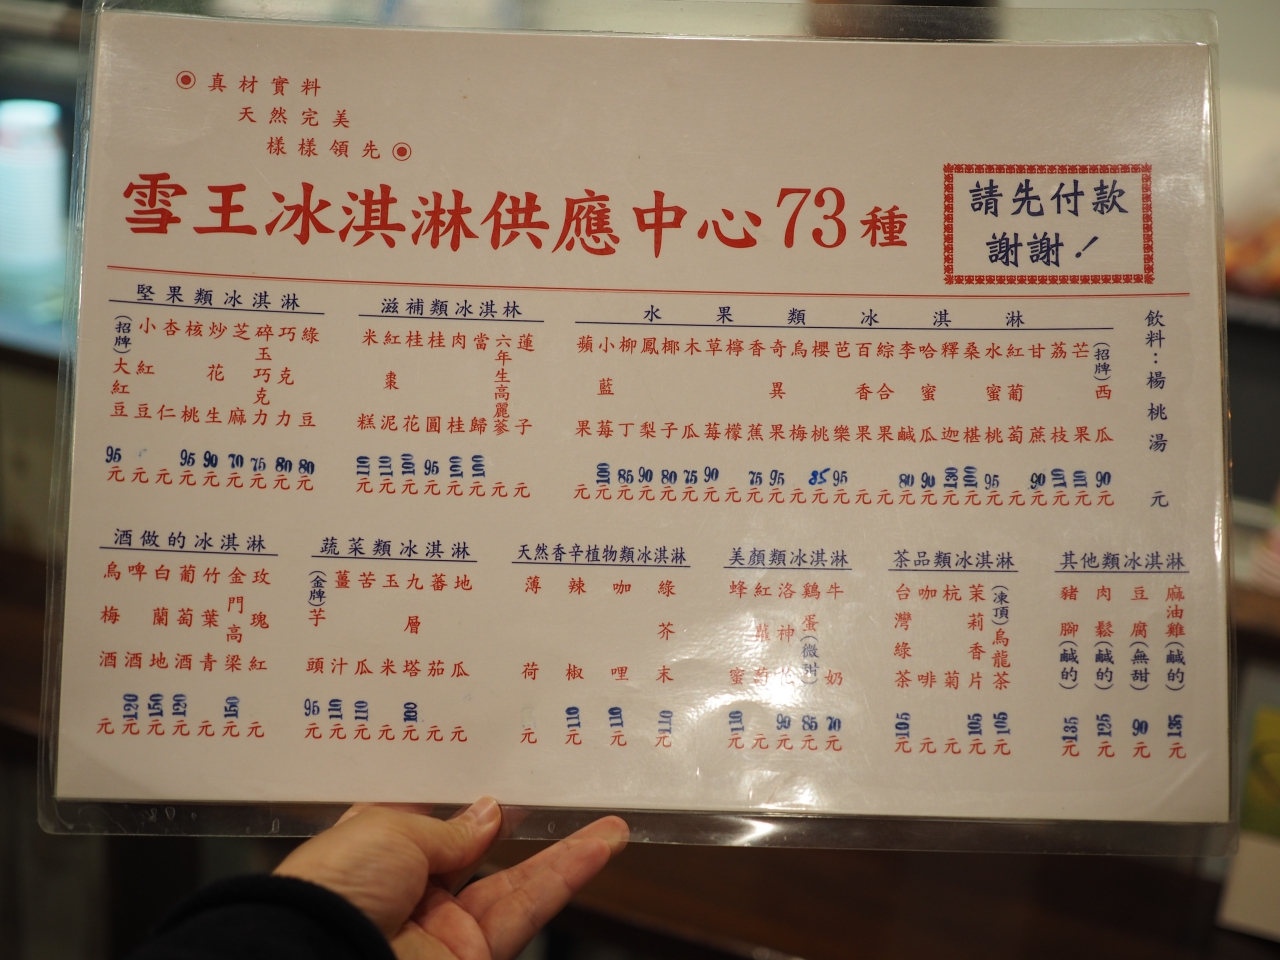 真材實料
天然完美
樣樣領先
雪王冰淇淋供應中心73種
請先付款
謝謝!
堅果類冰淇淋
(招牌)大紅豆 95元
小紅豆 元
杏仁 元
核桃 95元
炒花生 90元
芝麻 70元
碎玉巧克力 75元
巧克力 80元
綠豆 80元
滋補類冰淇林
米糕 110元
紅棗泥 110元
桂花 100元
桂圓 95元
肉桂 100元
當歸 100元
六年生高麗蔘 元
蓮子 元
水果類冰淇淋
蘋果 元
小藍莓 100元
柳丁 85元
鳳梨 90元
椰子 80元
木瓜 75元
草莓 90元
檸檬 元
香蕉 75元
奇異果 95元
烏梅 元
櫻桃 85元
芭樂 95元
百香果 元
綜合果 元
李鹹 80元
哈蜜瓜 90元
釋迦 130元
桑椹 100元
水蜜桃 95元
紅葡萄 元
甘蔗 90元
荔枝 110元
芒果 110元
(招牌)西瓜 90元
飲料:楊桃湯 元
酒做的冰淇淋
烏梅酒 元
啤酒 120元
白蘭地 150元
葡萄酒 120元
竹葉青 元
金門高梁 150元
玫瑰紅 元
蔬菜類冰淇淋
(金牌)芋頭 95元
薑汁 110元
苦瓜 110元
玉米 元
九層塔 100元
蕃茄 元
地瓜 元
天然香辛植物類冰淇淋
薄荷 元
辣椒 110元
咖哩 110元
綠芥末 110元
美顏類冰淇淋
蜂蜜 110元
紅蘿蔔 元
洛神花 90元
鷄蛋(微甜) 85元
牛奶 70元
茶品類冰淇淋
台灣綠茶 105元
咖啡 元
杭菊 元
茉莉香片 105元
(凍頂)烏龍茶 105元
其他類冰淇淋
豬腳(鹹的) 135元
肉鬆(鹹的) 125元
豆腐(無甜) 90元
麻油雞(鹹的) 135元